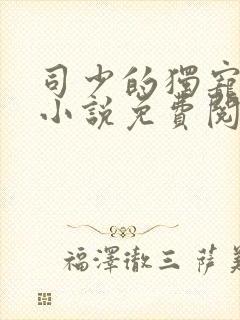 司少的獨寵
小說免費閱
福澤徹三 薩